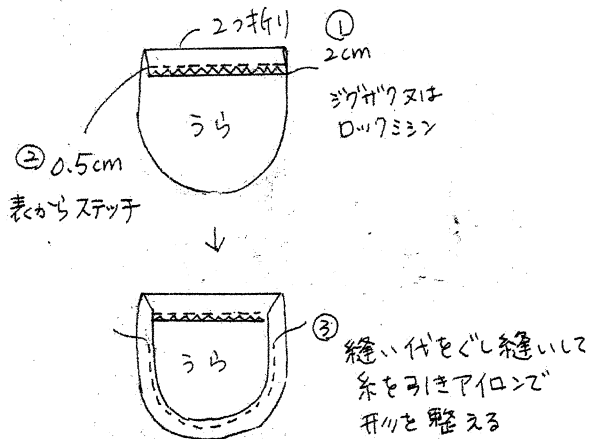 2つ折り
①
2cm
ジグザク又は
ロックミシン
うら
② 0.5cm
表からステッチ
↓
うら
③ 縫い代をぐし縫いして
糸を引きアイロンで
形を整える